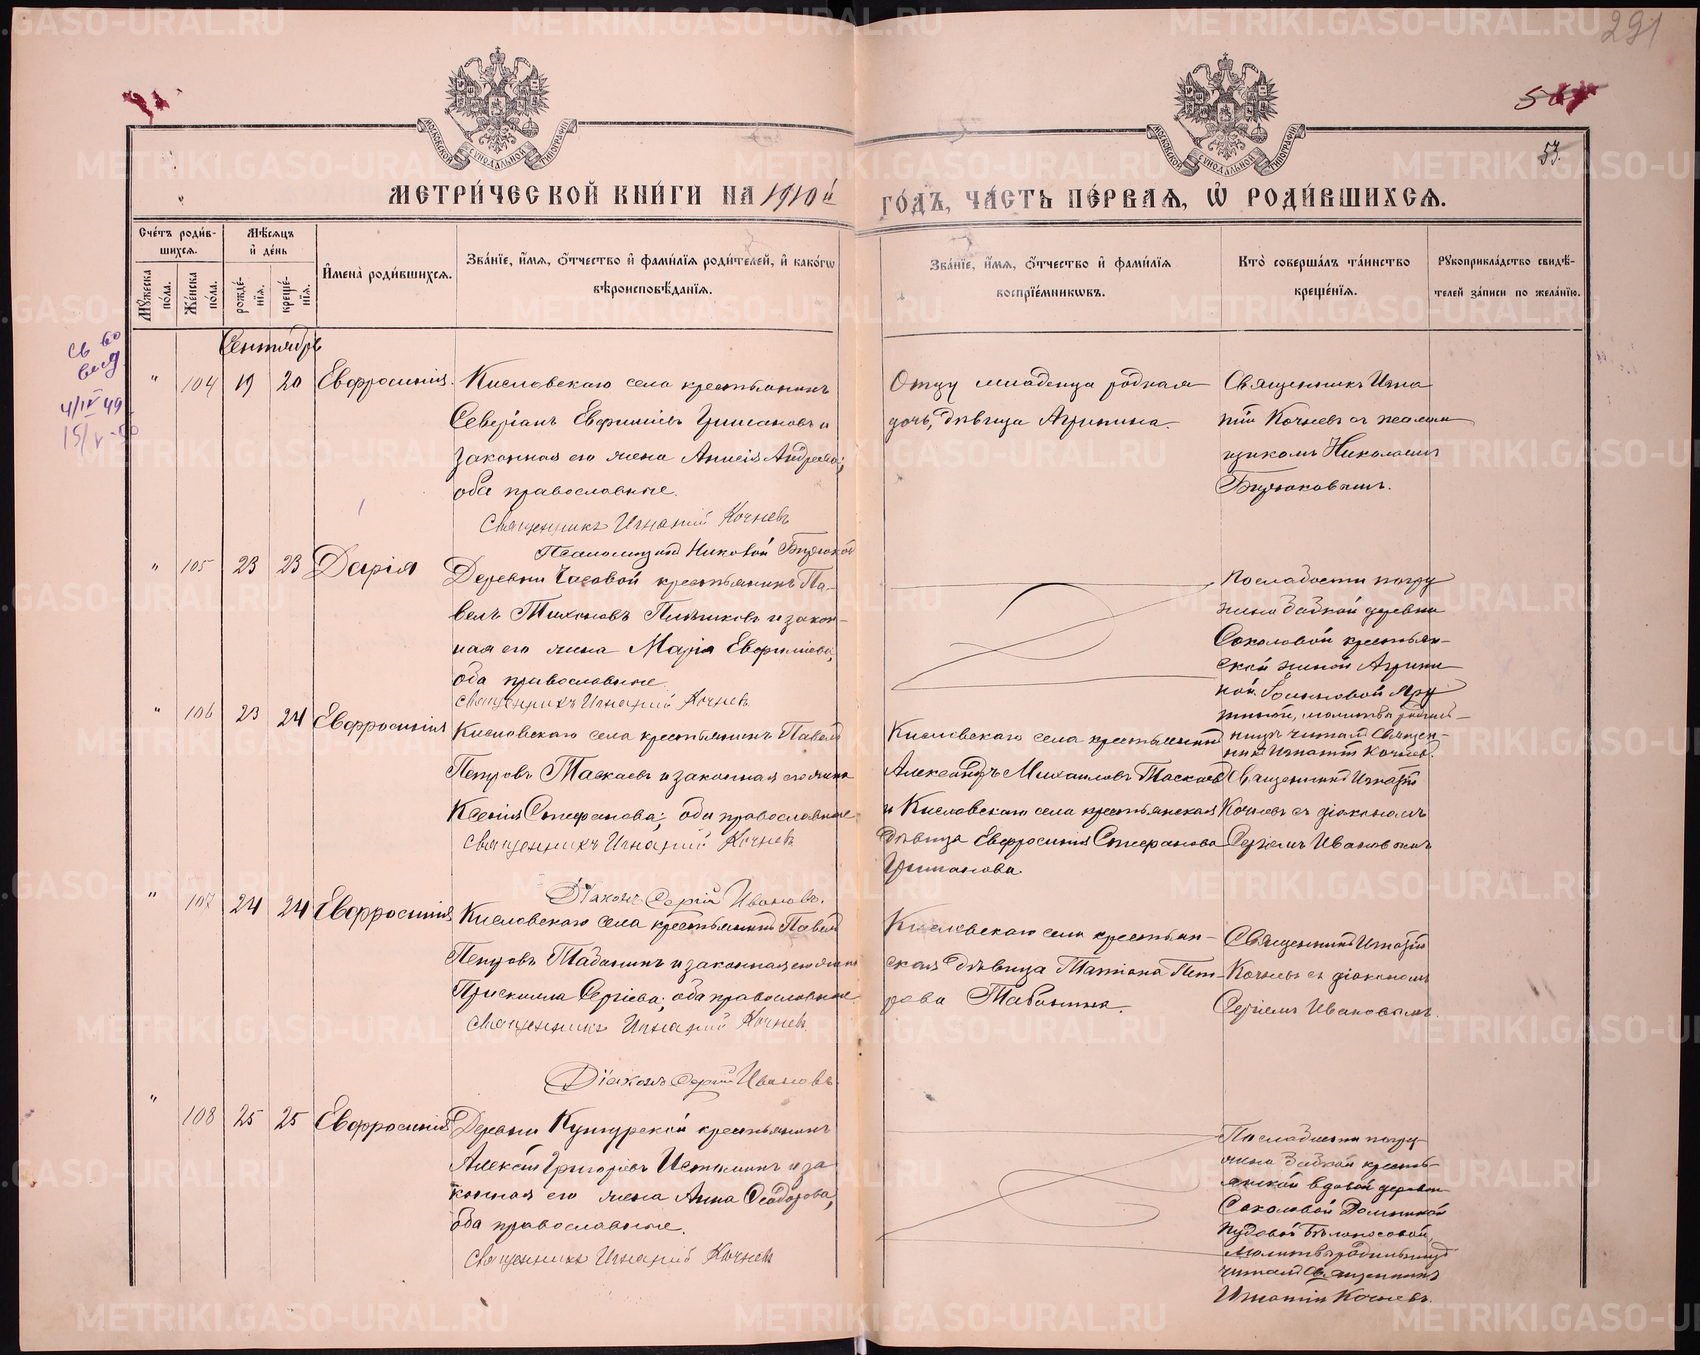 291
53.
МОСКОВСКОЙ СУНОДАЛЬНОЙ ТИПОГРАФІИ
МОСКОВСКОЙ СУНОДАЛЬНОЙ ТИПОГРАФІИ
МЕТРИ́ЧЕСКОЙ КНИ́ГИ НА 1910й ГО́ДЪ, ЧА́СТЬ ПЕ́РВАѦ, Ѡ҆ РОДИ́ВШИХСѦ.
Сче́тъ роди́вшихсѧ.
Мꙋ́жеска по́ла.
Же́нска по́ла.
Мѣ́сѧцъ и҆ де́нь
рожде́нїѧ.
креще́нїѧ.
И҆мена̀ роди́вшихсѧ.
Зва́нїе, и҆́мѧ, ѻ҆́тчество и҆ фами́лїѧ роди́телей, и҆ како́гѡ вѣроисповѣ́данїѧ.
Зва́нїе, и҆́мѧ, ѻ҆́тчество и҆ фами́лїѧ воспрїе́мникѡвъ.
Кто̀ соверша́лъ та́инство креще́нїѧ.
Рꙋкоприкла́дство свидѣ́телей за́писи по жела́нїю.
Сентябрь
св во
выд
4/IV 49
15/V-50
" 104 19 20 Евфросинія.
Кисловскаго села крестьянинъ
Северіанъ Евфиміевъ Гришановъ и
законная его жена Анисія Андреева;
оба православные.
Священникъ Игнатій Кочневъ
Псаломщикъ Николай Бирюков
Отцу младенца родная
дочь, дѣвица Агрипина.
Священникъ Игна
тій Кочневъ съ псалом
щикомъ Николаемъ
Бирюковымъ.
" 105 23 23 Дарія
Деревни Часовой крестьянинъ Па-
велъ Тихоновъ Пьянковъ и закон-
ная его жена Марія Евфиміева,
оба православные.
Священникъ Игнатій Кочневъ
По слабости погру
жена бабкой деревни
Соколовой крестьян-
ской женой Агрипи
ной
молитвы родиль-
ницѣ читалъ Священ-
никъ Игнатій Кочневъ.
" 106 23 24 Евфросинія
Кисловскаго села крестьянинъ Павелъ
Петровъ Таскаевъ и законная его жена
Ксенія Стефанова; оба православные
Священникъ Игнатій Кочневъ
Діаконъ Сергій Ивановъ.
Кисловскаго села крестьянинъ
Александръ Михаиловъ Таскаевъ
и Кисловскаго села крестьянская
дѣвица Евфросинія Стефанова
Гришанова.
Священникъ Игнатій
Кочневъ съ діакономъ
Сергіемъ Ивановымъ
" 107 24 24 Евфросинія
Кисловскаго села крестьянинъ Павелъ
Петровъ Табанинъ и законная его жена
Прискилла Сергіева; оба православные
Священникъ Игнатій Кочневъ
Діаконъ Сергій Ивановъ.
Кисловскаго села крестьян-
ская дѣвица Татіана Пет-
рова Табанина.
Священникъ Игнатій
Кочневъ съ діакономъ
Сергіемъ Ивановымъ.
" 108 25 25 Евфросинія
Деревни Кунгурской крестьянинъ
Алексій Григоріевъ Истоминъ и за
конная его жена Анна Ѳеодорова,
оба православные.
Священникъ Игнатій Кочневъ
По слабости погру-
жена бабкой кресть-
янской вдовой деревни
Соколовой Домникой
Бѣлоносовой,
Молитвы родильницѣ
читалъ Священникъ
Игнатій Кочневъ.
METRIKI.GASO-URAL.RU